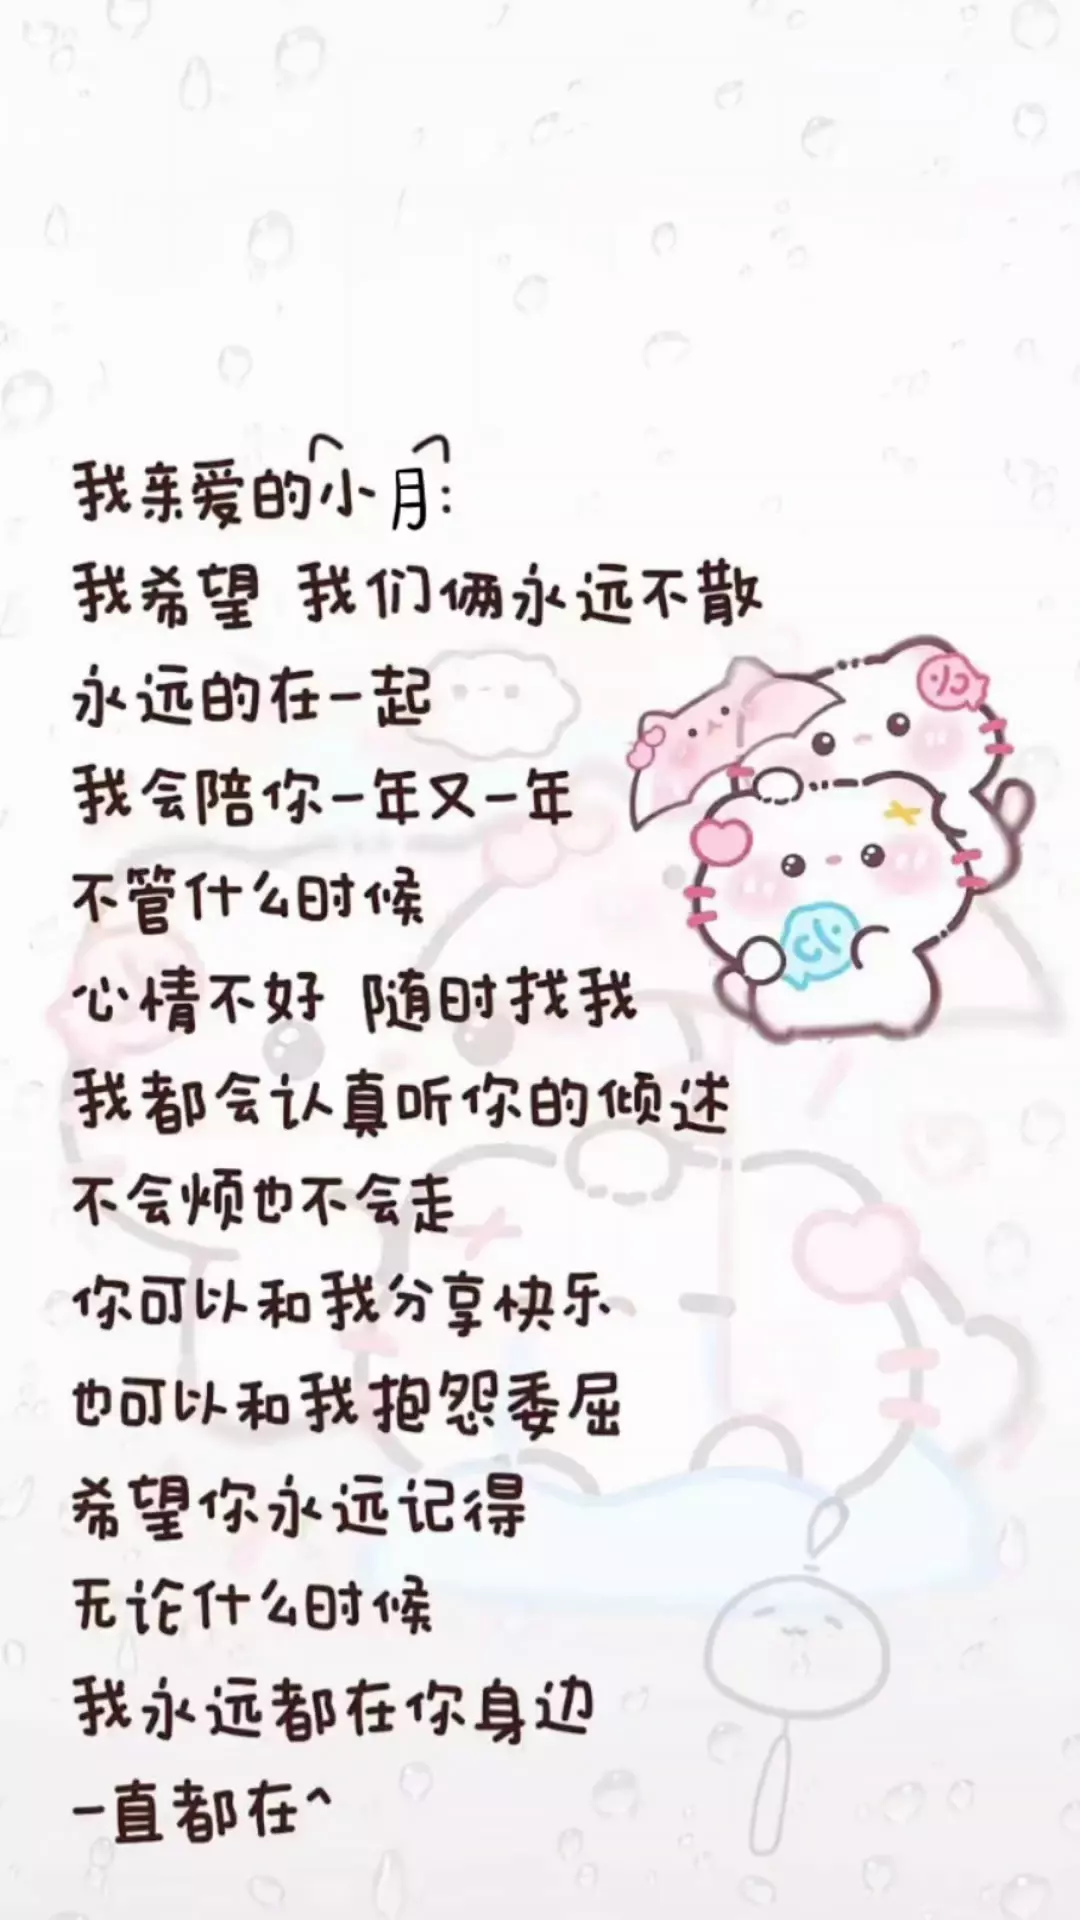 我亲爱的小月:
我希望 我们俩永远不散
永远的在一起
我会陪你一年又一年
不管什么时候
心情不好 随时找我
我都会认真听你的倾述
不会烦也不会走
你可以和我分享快乐
也可以和我抱怨委屈
希望你永远记得
无论什么时候
我永远都在你身边
一直都在^